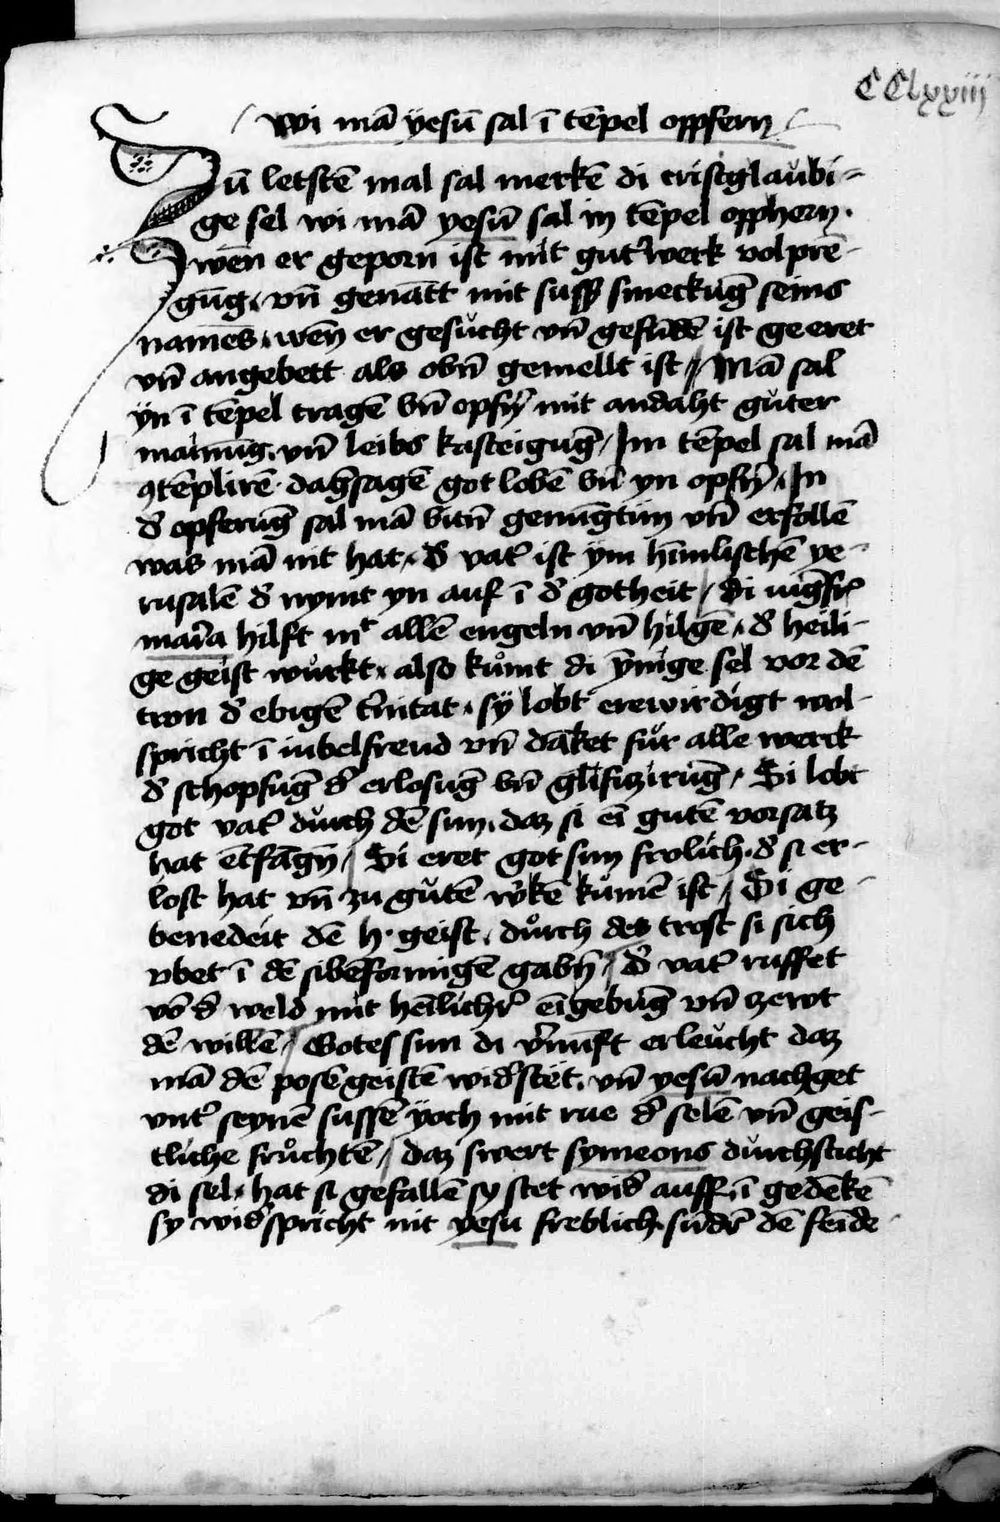 CClxxiij
wi mā ÿesū sal ī tēpel oppfern
Zū letstē mal sal merkē di cristglaubi-
ge sel wi mā yesū sal in tēpel opphern.
wēn er geporn ist mit gut' werk volprē-
gūg. vn̄ genātt mit suss smeckūg seins
namēs. wēn er gesůcht vn̄ gefūdē ist geeret
vn̄ angebett als obn̄ gemellt ist / Mā sal
ÿn ī tēpel tragē vn̄ opfn̄ mit andaht gůter
mainūg. vn̄ leibs kasteigūg / Im tēpel sal mā
ꝯtēplirē dagsagē got lobē vn̄ yn opfn̄ / In
d' opferūg sal mā bitn̄ genūgtun vn̄ erfollē
was mā nit hat. d' vat' ist ÿm hīmlischē ye-
rusalē d' nymt yn auf ī d' gotheit / di iūgfr'
maria hilft mt allē engeln vn̄ hilgē. d' heili-
ge geist wůrkt. also kůmt di ÿnige sel vor dē
tron d' ebigē t'initat. sÿ lobt erewirdigt wol-
spricht ī iubelfreud vn̄ dāket fůr alle werck
d' schopfūg d' erlosūg vn̄ glifizirūg / Si lobt
got vat' důrch dē sun. daz si eī gutē vorsatz
hat ētfāgn̄ / Si eret got sun frolich. d' si er-
lost hat vn̄ zu gůtē w'kē kůmē ist / Si ge-
benedeit dē h. geist. důrch des trost si sich
vbet ī dē sibēformigē gabn̄ / d' vat' ruffet
vō d' weld mit hēlichr' eīgebūg vn̄ zewt
dē willē / Gotes sun di v'nunft erleucht daz
mā dē posē geistē wid'stet. vn̄ yesū nachget
vnt' seynē sussē ÿoch mit rue d' selē vn̄ geis-
tliche frůchtē / daz swert symeons důrchsticht
di sel. hat si gefallē sy stet wid' auff. ī gedēkē
sy wid'spricht nit yesu freblich sūdr' dē feīde